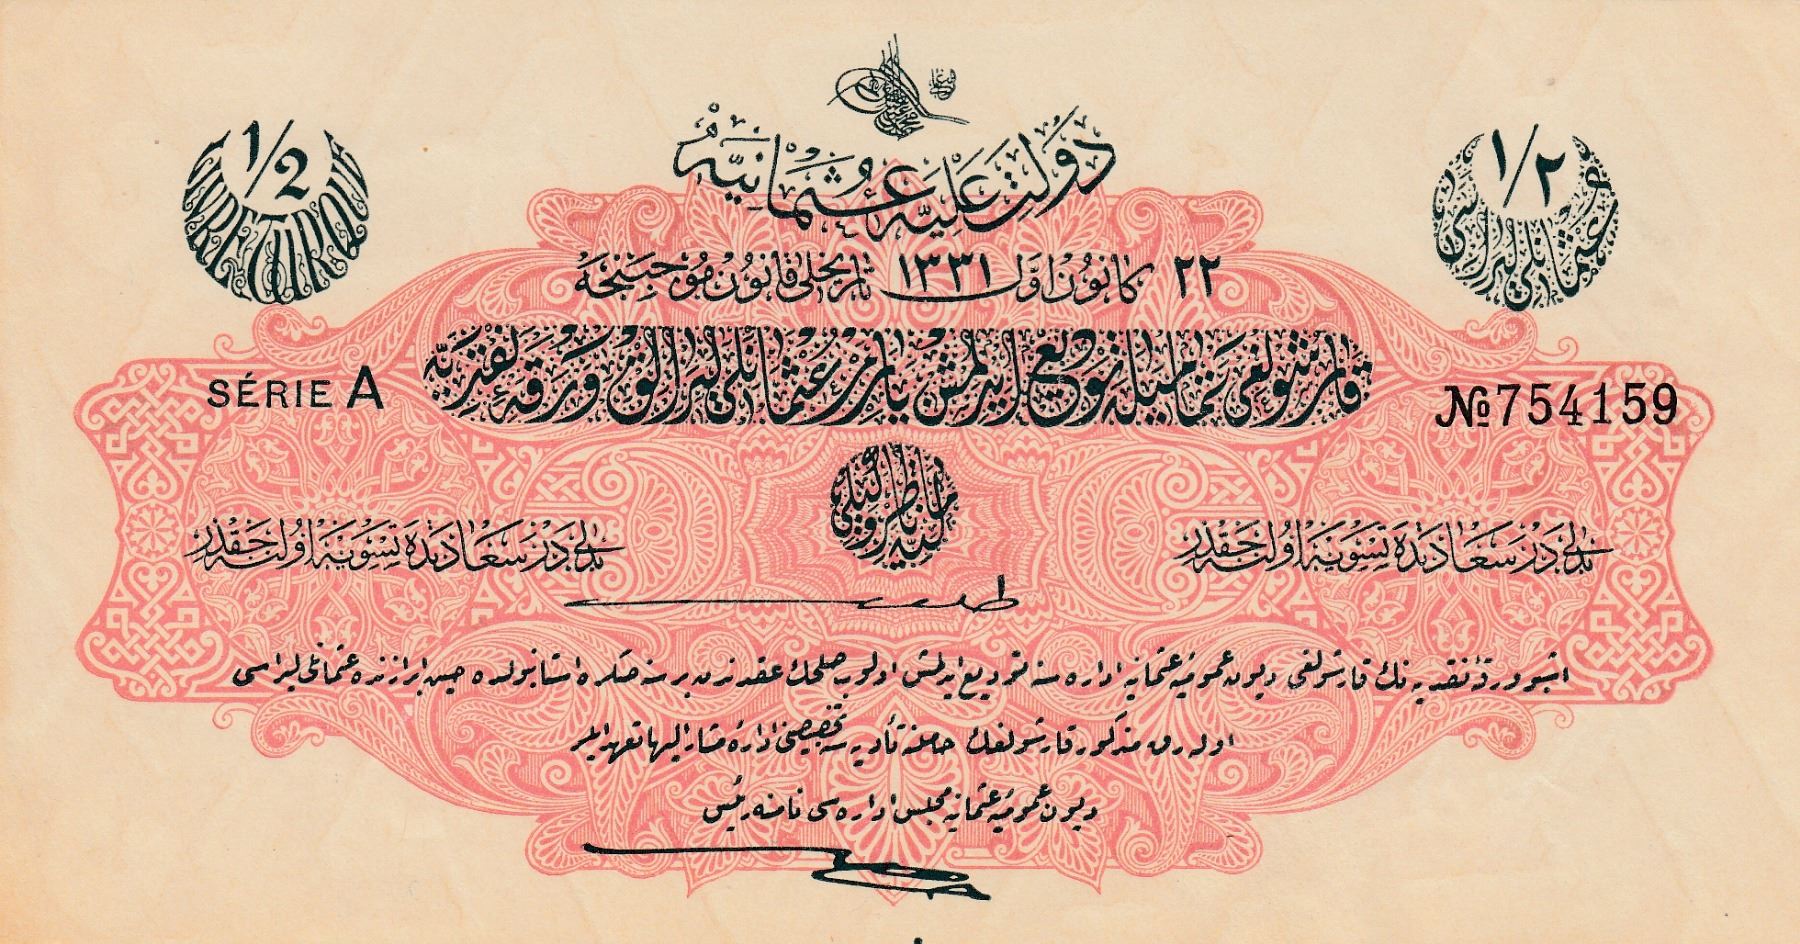 دولت علیّه عثمانیّه
1/2
LIVRE TURQUE
١/٢
عثمانلی لیراسی
٢٢ كانون اول ١٣٣١ تاریخلی قانون موجبنجه
قارشولغی تمامیله تودیع ایدلمش یارم عثمانلی لیرالق ورقهٔ نقدیه
SÉRIE A
№754159
مالیه ناظری وکیلی
بدلی درسعادتده تسویه اولنه جقدر
بدلی درسعادتده تسویه اولنه جقدر
طلعت
اشبو ورقهٔ نقدیه نك قارشولغی دیون عمومیهٔ عثمانیه اداره سنه تودیع ایدلمش اولوب صلحك عقدندن بر سنه صكره استانبولده عثمانلی لیراسی
اوله رق مذكور قارشولغك حاملنه تأدیه سنه تخصیصنی ادارهٔ مشار الیها تعهد ایلر
دیون عمومیهٔ عثمانیه مجلس اداره سی نامنه رئیس